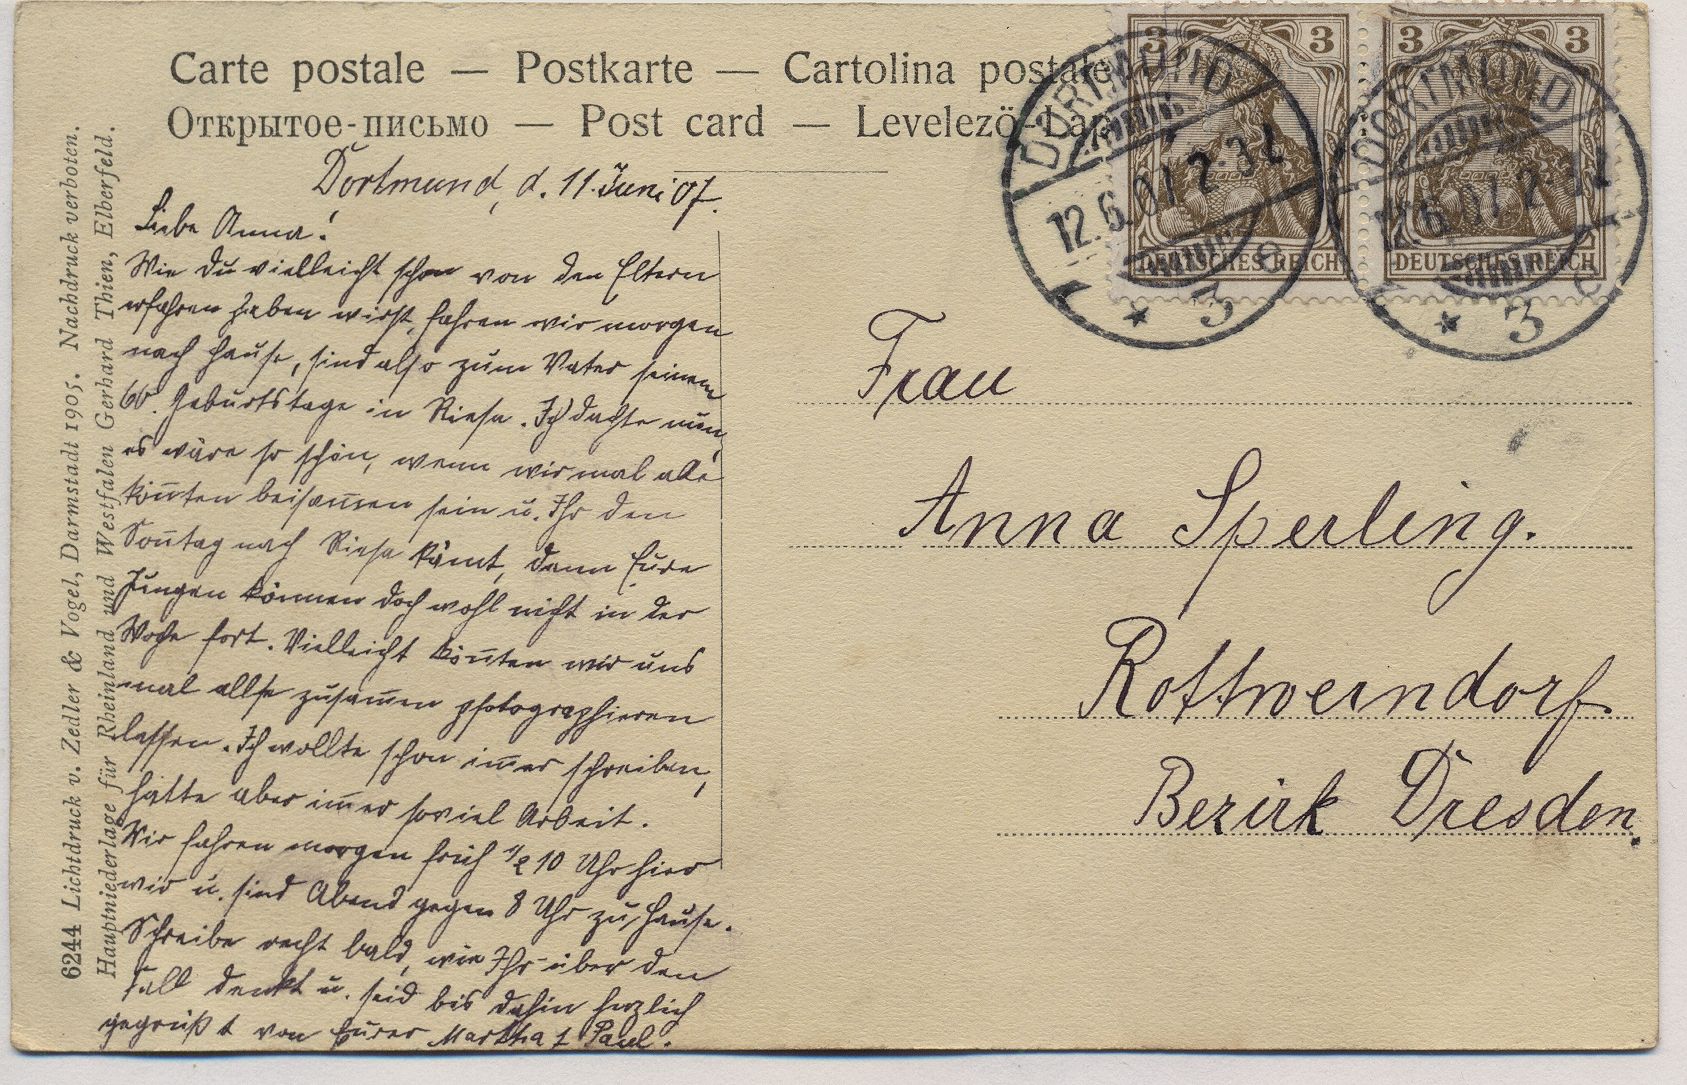 Carte postale — Postkarte — Cartolina postale
Открытое-письмо — Post card — Levelezö-Lap
3 3
3 3
DEUTSCHES REICH
DEUTSCHES REICH
DORTMUND
12.6.07. 2-3 N.
* 3 e
DORTMUND
12.6.07. 2-3 N.
* 3 e
6244 Lichtdruck v. Zedler & Vogel, Darmstadt 1905. Nachdruck verboten.
Hauptniederlage für Rheinland und Westfalen Gerhard Thien, Elberfeld.
Dortmund, d. 11. Juni 07.
Liebe Anna!
Wie Du vielleicht schon von den Eltern
erfahren haben wirst, fahren wir morgen
nach Hause, sind also zum Vater seinem
60. Geburtstage in Riesa. Ich dachte nun,
es wäre so schön, wenn wir mal alle
kön̄ten beisam̄en sein u. Ihr den
Son̄tag nach Riesa kämt, denn Eure
Jungen können doch wohl nicht in der
Woche fort. Vielleicht kön̄ten wir uns
mal alle zusam̄en photographieren
lassen. Ich wollte schon im̄er schreiben,
hatte aber im̄er soviel Arbeit.
Wir fahren morgen früh 1/2 10 Uhr hier
u. sind Abend gegen 8 Uhr zu Hause.
Schreibe recht bald, wie Ihr über den
Fall denkt u. seid bis dahin herzlich
gegrüßt von Eurer Martha & Paul.
Frau
Anna Sperling.
Rottwerndorf
Bezirk Dresden.